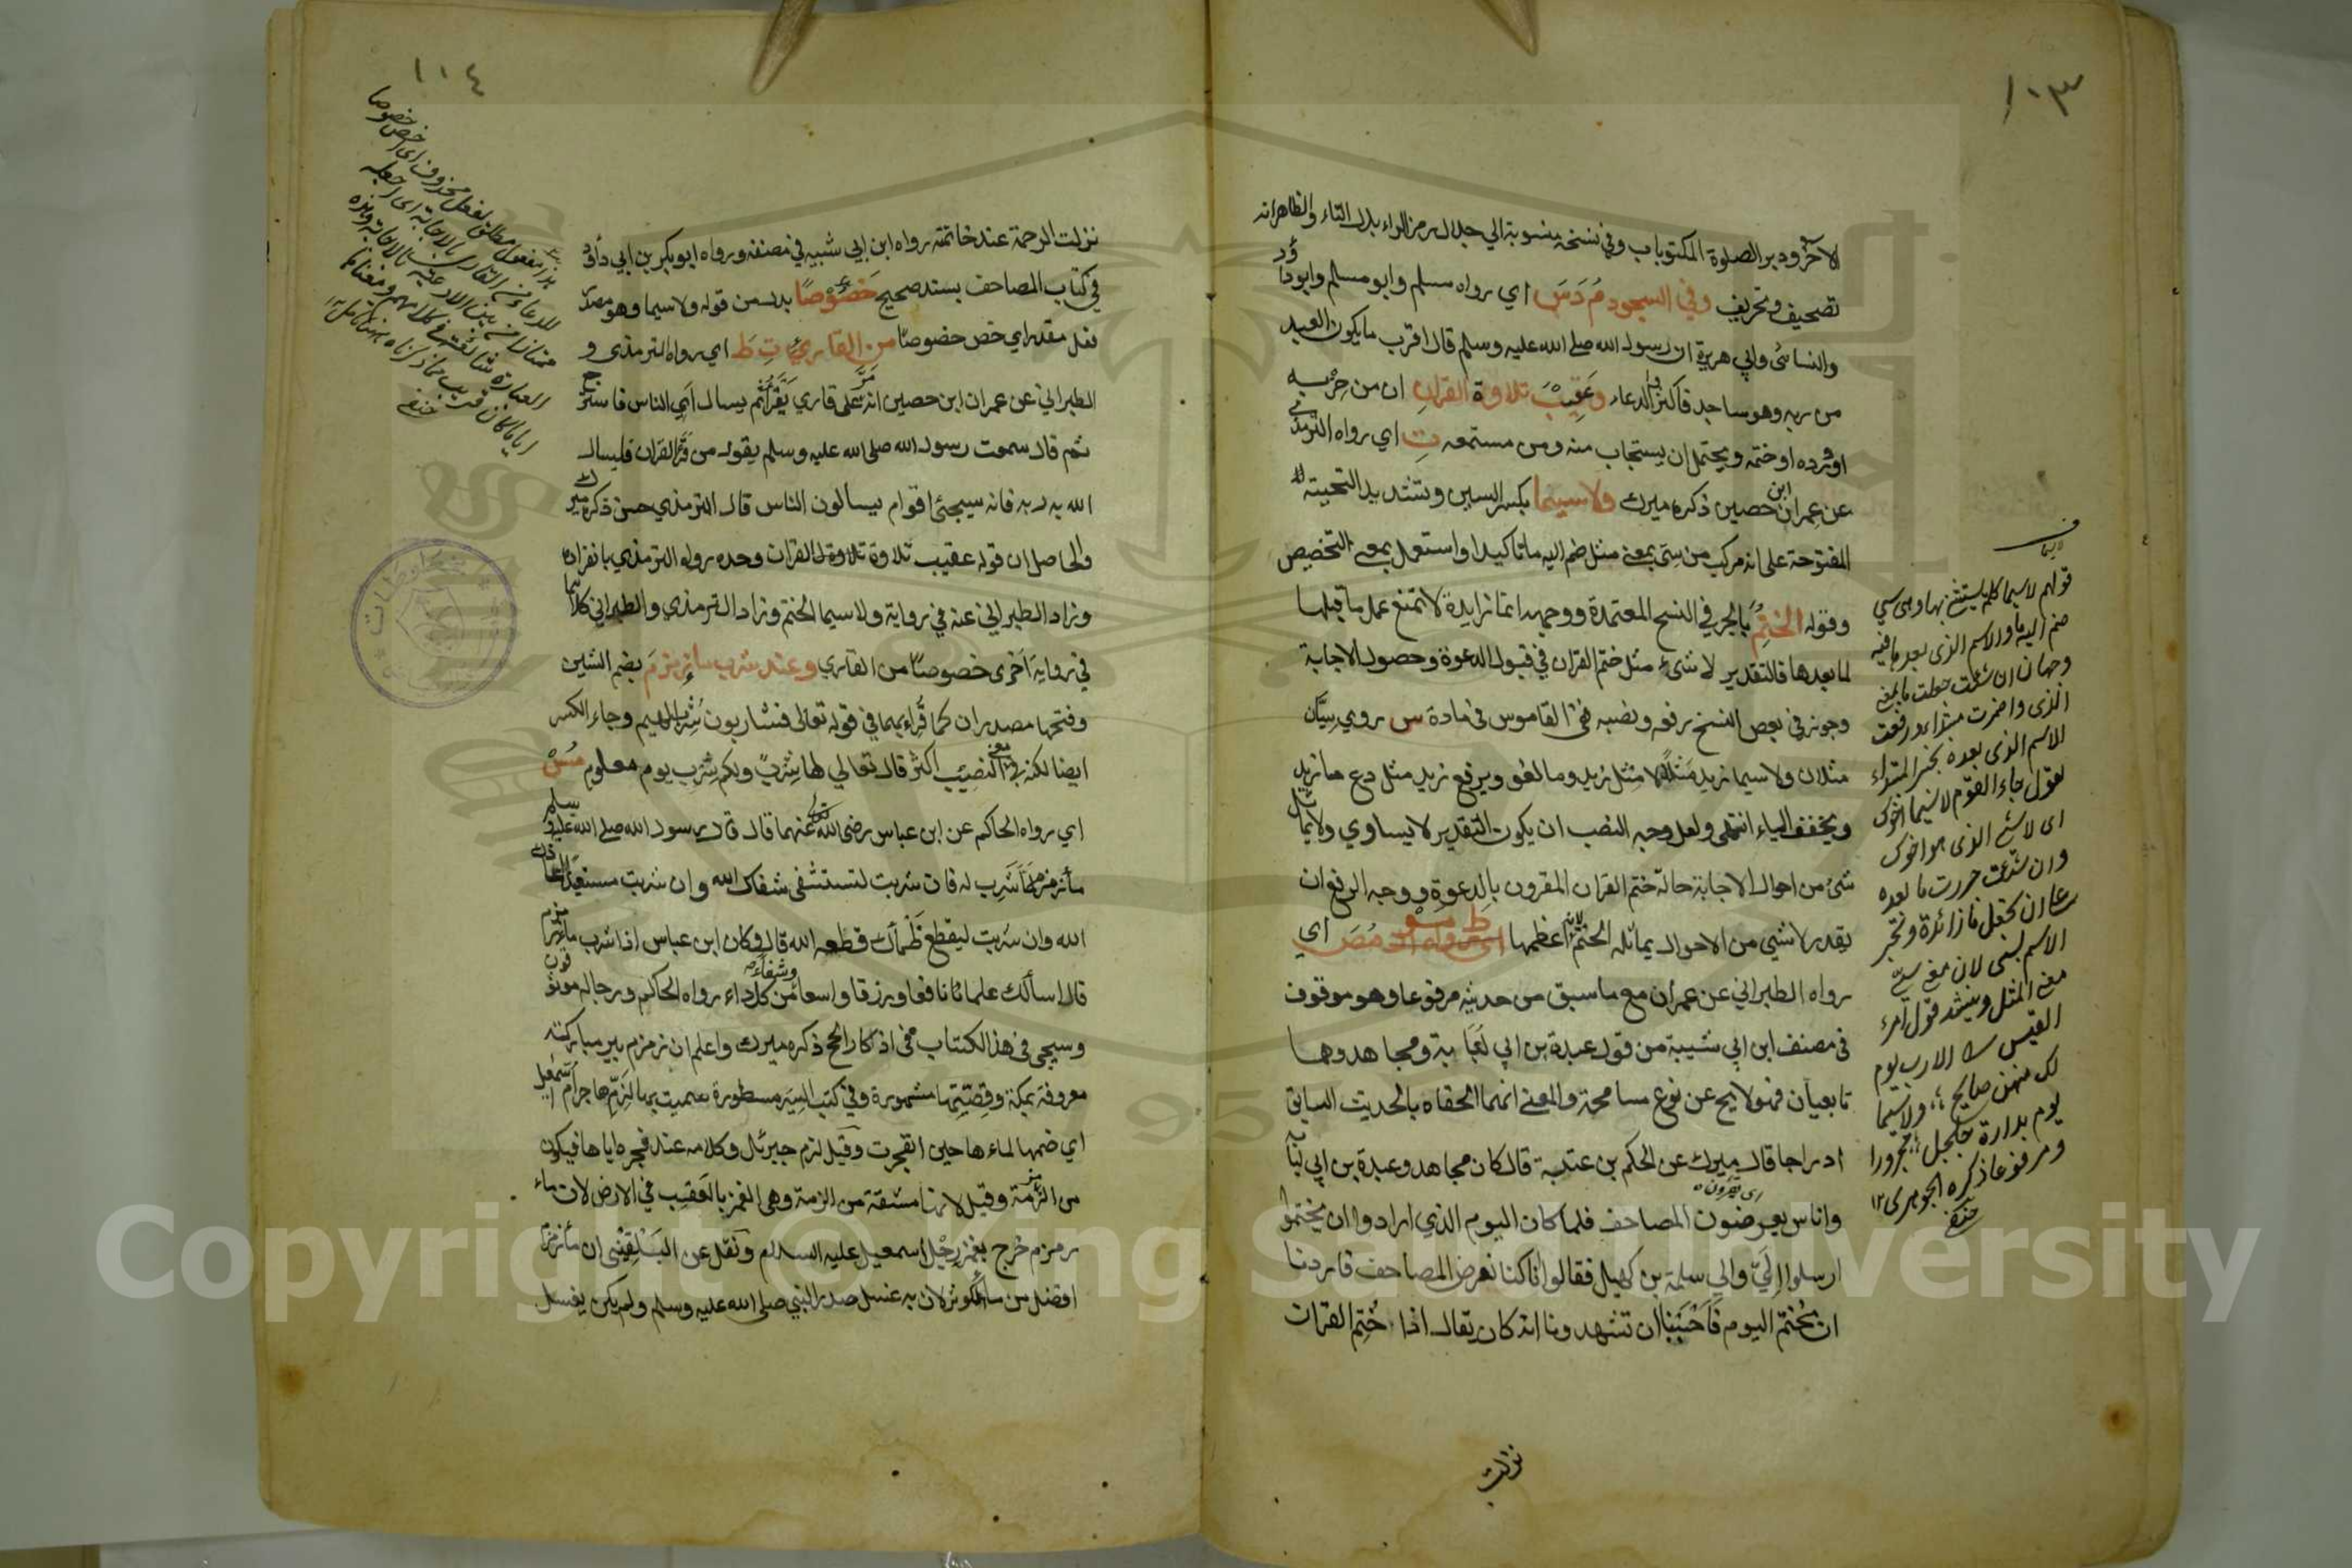 ١٠٣
الاخر ودبر الصلوة المكتوبات وفي نسخة منسوبة الي جلال رمز الراء بدل التاء والظاهر انه
تصحيف وتحريف وفي السجود مُ دَ سَ اي رواه مسلم وابو مسلم وابوداؤد
والنسائى وابي هريرة ان رسول الله صلى الله عليه وسلم قال اقرب ما يكون العبد
من ربه وهو ساجد فاكثروا الدعاء وعَقِيْبَ تلاوة القرانِ ان من حزبه
او ورده او ختمه ويحتمل ان يستجاب منه ومن مستمعه تِ اي رواه الترمذي
عن عمران ابن حصين ذكره ميرك ولا سيما بكسر السين وتشديد التحتية
المفتوحة على انه مركب من سىّ بمعنى مثل ضم اليه ما تاكيدا واستعمل بمعنى التخصيص
وقوله الختمِ بالجر في النسخ المعتمدة ووجهه انما زايدة لا تمنع عمل ما قبلها
لما بعدها فالتقدير لا شىء مثل ختم القران في قبول الدعوة وحصول الاجابة
وجوز في بعض النسخ رفعه ونصبه ففي القاموس في مادة س روي سيّان
مثلان ولا سيما زيد مثلُ لا مثل زيد وما لغو ويرفع زيد مثل دع ما زيد
ويخفف الياء انتهى ولعل وجه النصب ان يكون التقدير لا يساوي ولا يماثل
شئ من احوال الاجابة حالة ختم القران المقرون بالدعوة ووجه الرفع ان
يقدر لا شيى من الاحوال يماثله الختم لانه اعظمها ط مو مُصَ اي
رواه الطبراني عن عمران مع ما سبق من حديثه مرفوعا وهو موقوف
في مصنف ابن ابي شيبة من قول عبدة بن ابي لُبَابة ومجاهد وهما
تابعيان فهو لا يح عن نوع مسامحة والمعنى انهما الحقاه بالحديث السابق
ادراجا قال ميرك عن الحكم بن عتيبة قال كان مجاهد وعبدة بن ابي لبابة
اى يقرؤن
وناس يعرضون المصاحف فلما كان اليوم الذي ارادوا ان يختموا
ارسلوا اليّ والي سلمة بن كهيل فقالوا انا كنا نعرض المصاحف فاردنا
ان نختم اليوم فاحببنا ان تشهدونا انه كان يقال اذا ختم القران
نزلت
قولهم لا سيما كلمة يستثنى بها وهى سي
ضم اليه ما والاسم الذى بعد ما فيه
وجهان ان شئت جعلت ما بمعنى
الذى واضمرت مبتداء ورفعت
الاسم الذى بعده بخبر المبتداء
تقول جاء القوم لا سيما اخوك
اى لا سي الذى هو اخوك
وان شئت جررت ما بعده
على ان تجعل ما زائدة وتجر
الاسم بسى لان معنى سي
معنى المثل وينشد قول امرء
القيس الا رب يوم
لك منهن صالح ولا سيما
يوم بدارة جلجل مجرورا
ومرفوعا ذكره الجوهرى ١٢
حنفى
١٠٤
نزلت الرحمة عند خاتمته رواه ابن ابي شيبه في مصنفه ورواه ابو بكر بن ابي داؤد
في كتاب المصاحف بسند صحيح خصوصًا بدل من قوله ولا سيما وهو مصدر
فعل مقدر اي خص خصوصًا من القاريْ تِ طَ اي رواه الترمذي و
الطبراني عن عمران ابن حصين انه مرّ على قاري يَقْرَأ ثم يسال اي الناس فاسترجع
ثم قال سمعت رسول الله صلى الله عليه وسلم يقول من قرأ القران فليسال
الله به فانه سيجئ اقوام يسالون الناس قال الترمذي حسن ذكره ميرك
والحاصل ان قوله عقيب تلاوة القران وحده رواه الترمذي بانفراده
وزاد الطبراني عنه في رواية ولا سيما الختم وزاد الترمذي والطبراني كلاهما
في رواية اخرى خصوصًا من القاري وعند شرب ماء زمزمَ بضم الشين
وفتحها مصدران كما قراء بهما في قوله تعالى فشاربون شُرب الهيم وجاء الكسر
ايضا لكنه بمعنى النصيب اكثر قال تعالي لها شِرْبٌ ولكم شرب يوم معلوم مُسْ
اي رواه الحاكم عن ابن عباس رضى الله تعالى عنهما قال قال رسول الله صلى الله عليه وسلم
ماء زمزم لما شرب له فان شربت تستشفى شفاك الله وان شربت مستعيذا اعاذك
الله وان شربت ليقطع ظمأك قطعه الله قال وكان ابن عباس اذا شرب ماء زمزم
قال اسألك علما نافعا ورزقا واسعا وشفاءً من كل داء رواه الحاكم ورجاله موثقون
وسيجى في هذا الكتاب في اذكار الحج ذكره ميرك واعلم ان زمزم بير مباركة
معروفة بمكة وقصتها مشهورة وفي كتب السير مسطورة سميت بها لزمّ هاجر ام اسمعيل
اي ضمها لماءها حين انفجرت وقيل لزم جبرئل وكلامه عند فجره اياها فيكون
من الزمزمة وقيل لانها مشتقة من الزمة وهى الغمز بالعَقِب في الارض لان ماء
زمزم خرج بغمز رِجْل اسمعيل عليه السلام ونقل عن البَلْقِيْنى ان ماء زمزم
افضل من ماء الكوثر لان به غسل صدر النبي صلى الله عليه وسلم ولم يكن يغسل
هذا مفعول مطلق لفعل محذوف اى اخص خصوصا
الدعاء من القارى بالاجابة اى اجعله
ممتازا من بين الادعية بالاجابة وهذه
العبارة شائعة في كلامهم ومعناها
حنفى
Copyright © King Saud University